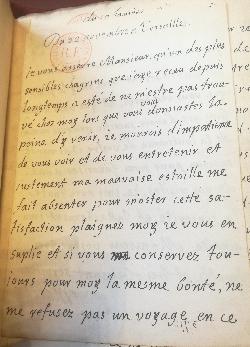 Du 22 novembre a Versaille.
je vous assure Monsieur, qu'un des plus
sensibles chagrins que j'aye receu depuis
longtemps a esté de ne m'estre pas trou-
vé chez moy lors que vous
vous donnastes la
peine d'y venir, je mourois d'impatience
de vous voir et de vous entretenir et
justement ma mauvaise estoille me
fait absenter pour m'oster cette sa-
tisfaction plaignez moy je vous en
suplie et si vous conservez tou-
jours pour moy la mesme bonté, ne
me refusez pas un voyage en ce